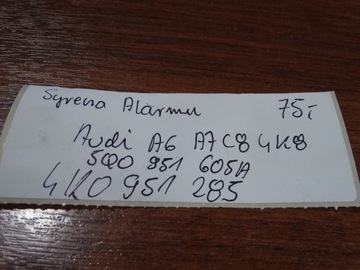 Syrena Alarmu 75,-
Audi A6 A7 C8 4K8
5Q0 951 605A
4K0 951 285